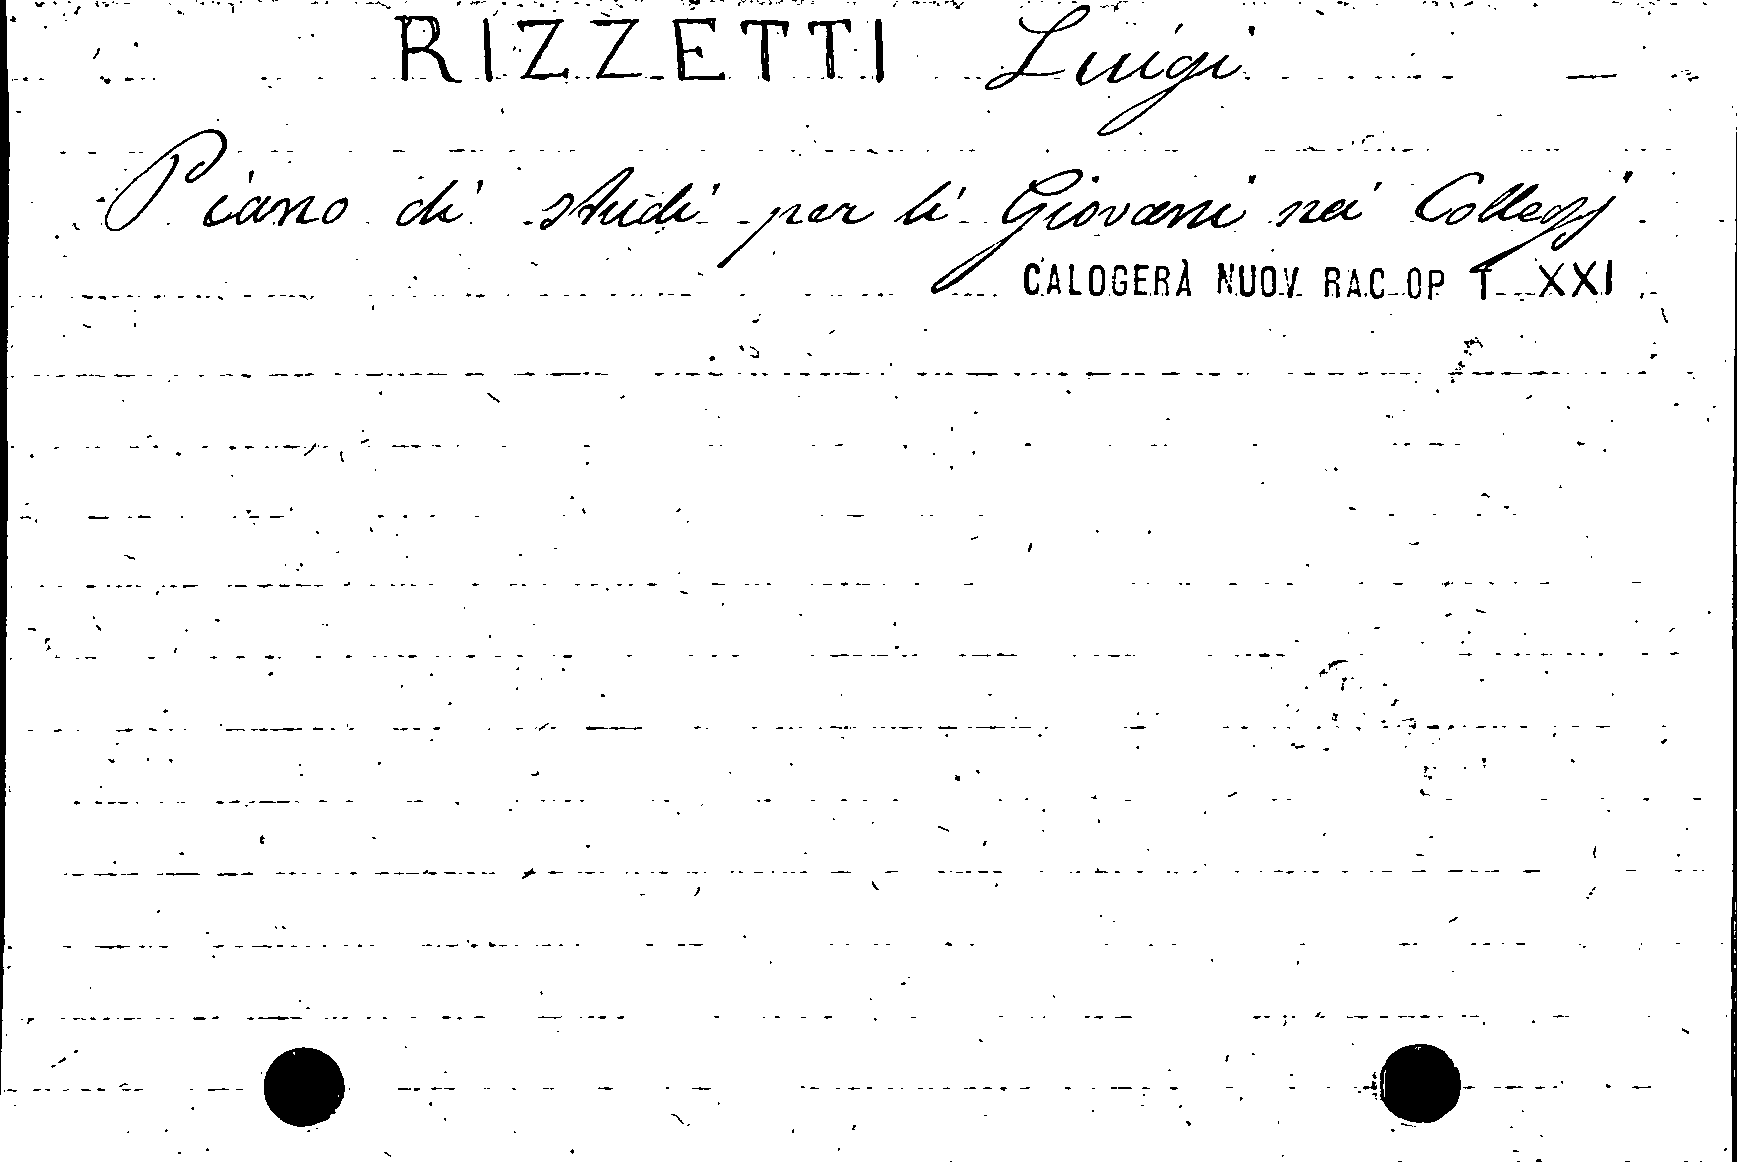 RIZZETTI Luigi
Piano di studi per li Giovani nei Collegj
CALOGERÀ NUOV. RAC. OP T. XXI